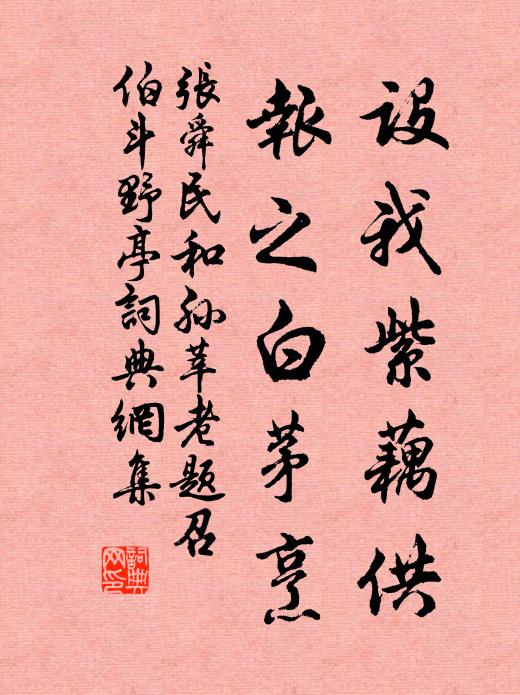 設我紫藕供
報之白茅烹
張舜民和孫莘老題召
伯斗野亭詞典網集
詞典
网印